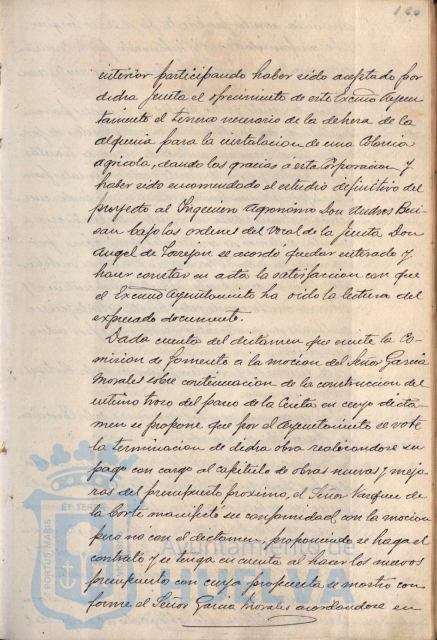 160
interior participando haber sido aceptado por
dicha Junta el ofrecimiento de este Excmo Ayun-
tamiento el terreno necesario de la dehesa de la
alqueria para la instalacion de una Colonia
agricola, dando las gracias a esta Corporacion y
haber sido encomendado el estudio definitivo del
proyecto al Ingeniero Agronomo Don Andres
bajo las ordenes del Vocal de la Junta Don
Angel de Torrejon se acordó quedar enterado y
hacer constar en acta la satisfaccion con que
el Excmo Ayuntamiento ha oido la lectura del
expresado documento.
Dada cuenta del dictamen que emite la Co-
mision de fomento a la mocion del Señor Garcia
Morales sobre continuacion de la construccion del
ultimo trozo del paseo de la Cinta en cuyo dicta-
men se propone que por el Ayuntamiento se vote
la terminacion de dicha obra realizandose su
pago con cargo al capitulo de obras nuevas y mejo-
ras del presupuesto proximo, el Señor Vazquez de
la Corte manifiesta su conformidad con la mocion
pero no con el dictamen, proponiendo se haga el
contrato y se tenga en cuenta al hacer los nuevos
presupuestos con cuya propuesta se mostro con-
forme el Señor Garcia Morales acordandose en
Ayuntamiento de
HUELVA
PORTUS MARIS
ET TERRE